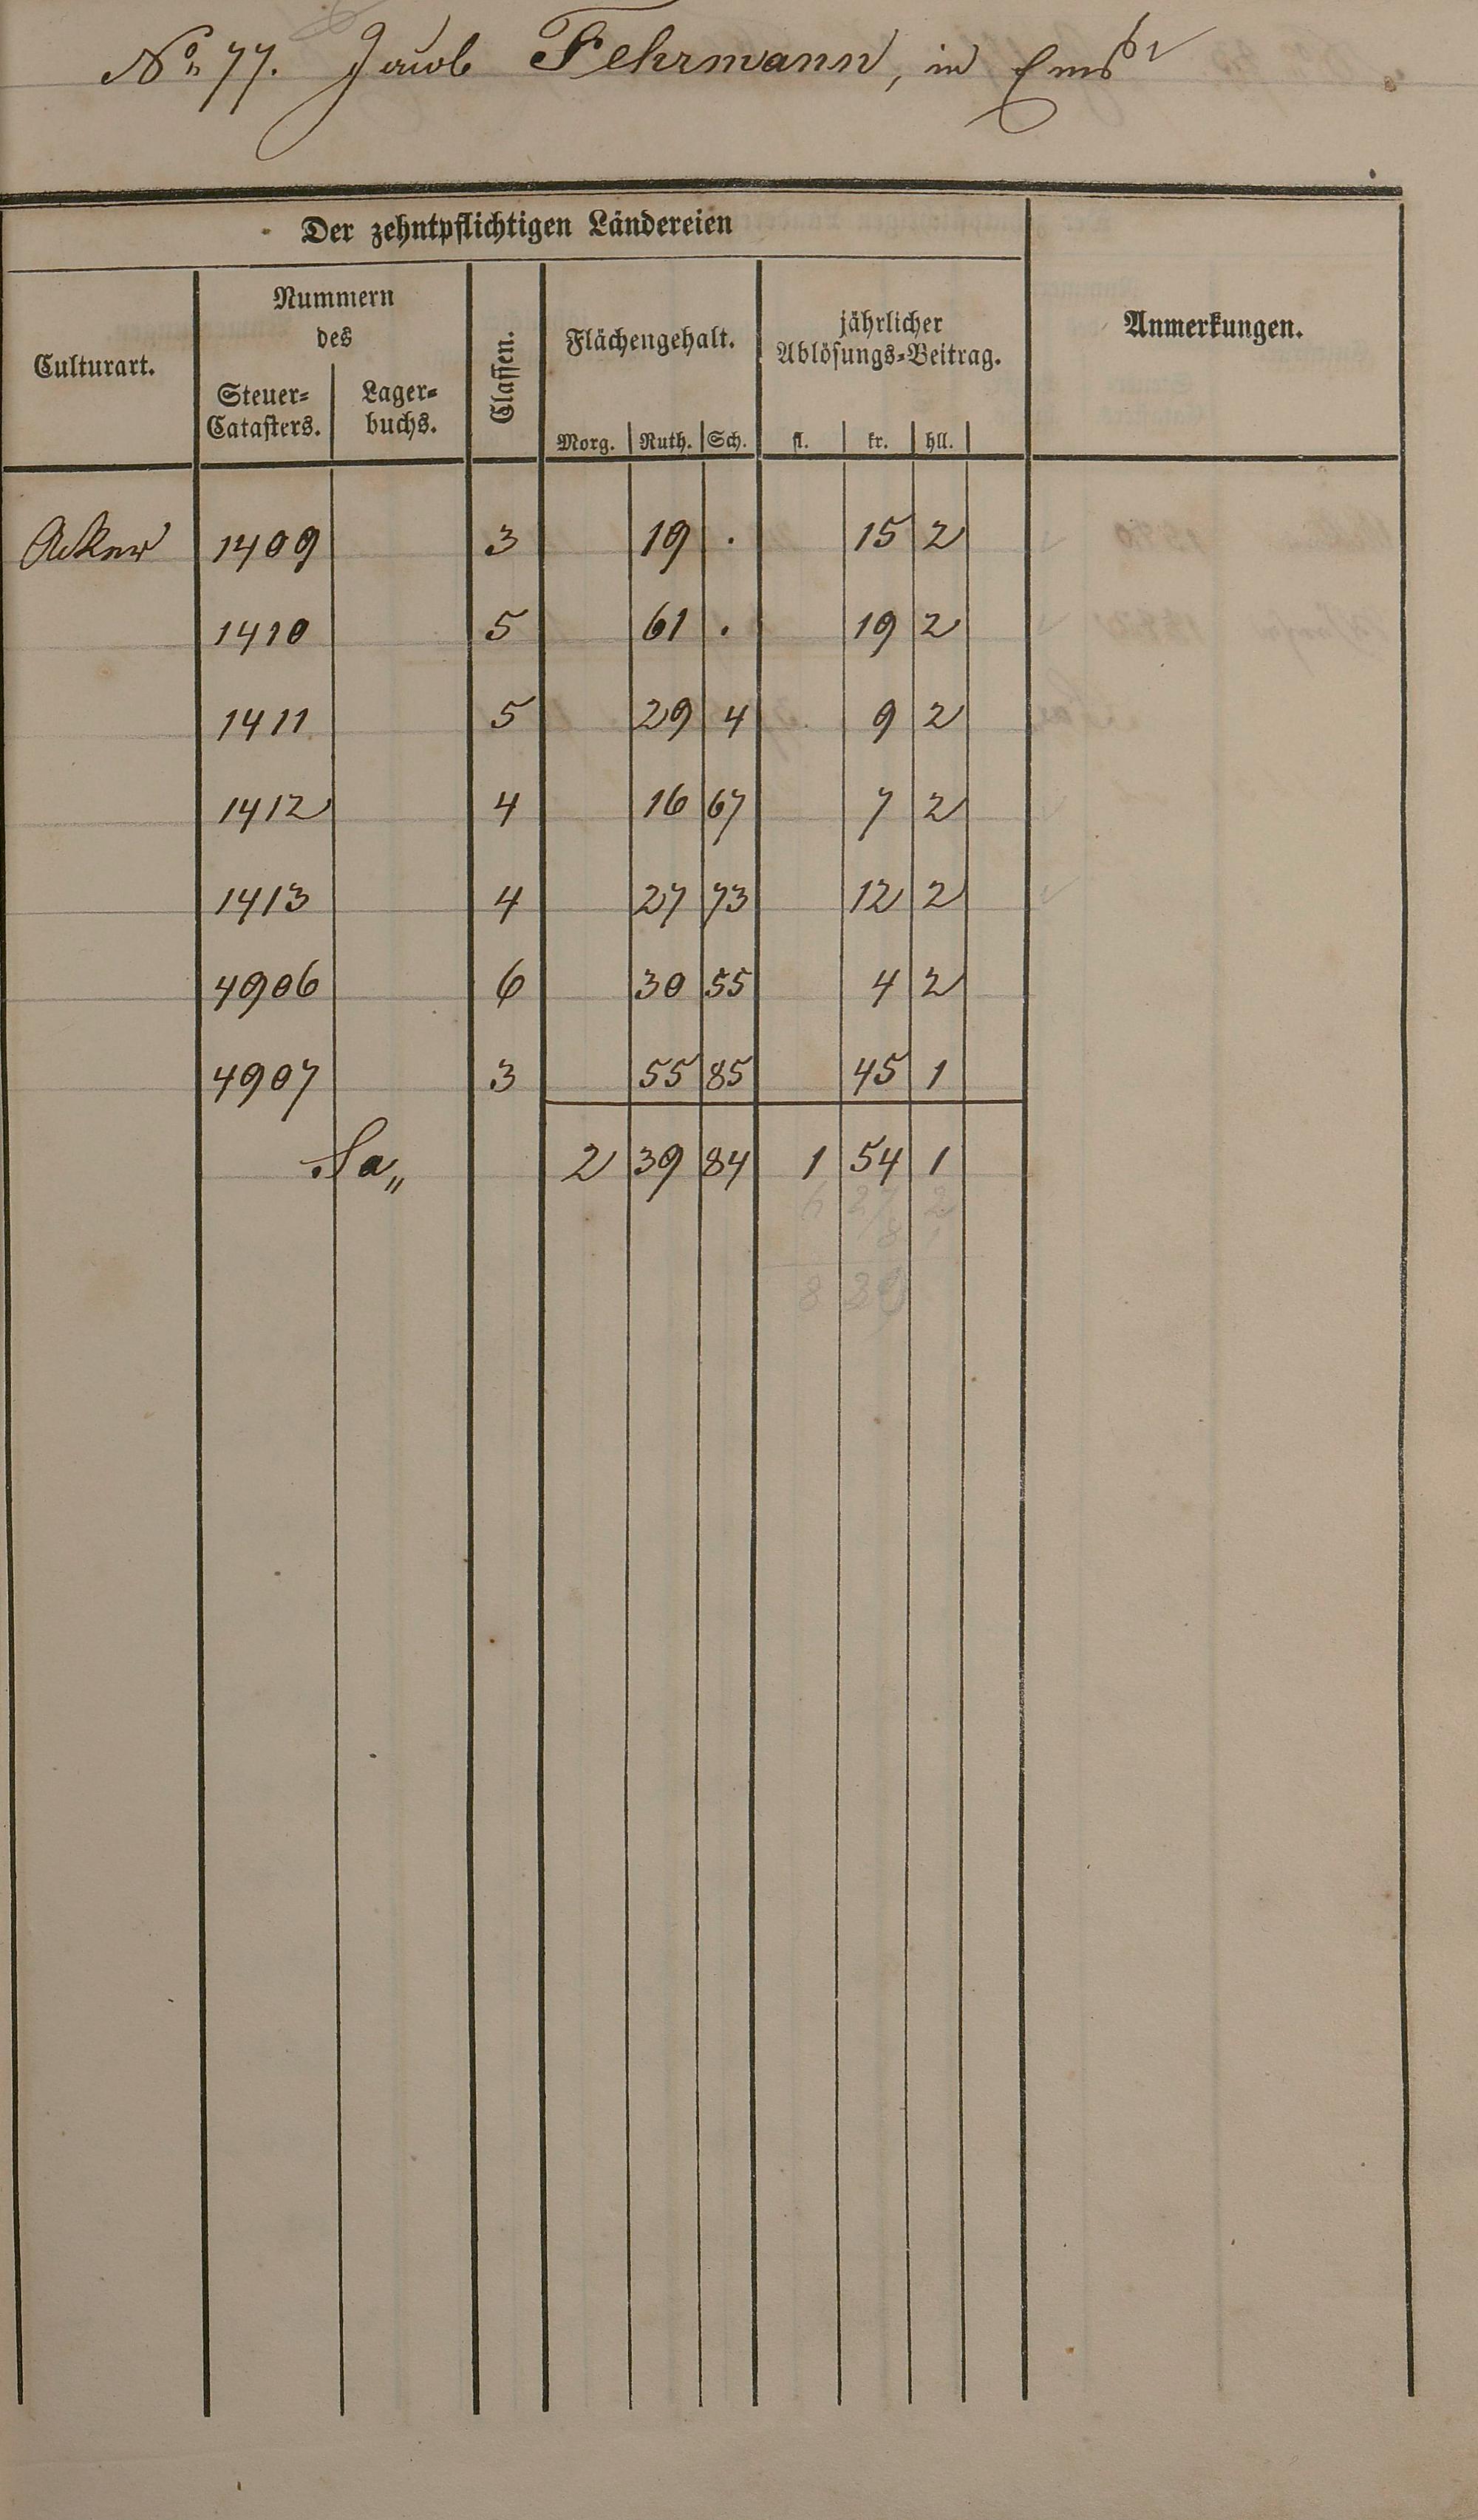 No. 77. Jacob Fehrmann, in Ems
Der zehntpflichtigen Ländereien
Culturart.
Nummern
des
Steuer-
Catasters.
Lager-
buchs.
Classen.
Flächengehalt.
Morg. Ruth. Sch.
jährlicher
Ablösungs-Beitrag.
fl. kr. hll.
Anmerkungen.
Acker 1409 3 19 . 15 2
1410 5 61 . 19 2
1411 5 29 4 9 2
1412 4 16 67 7 2
1413 4 27 73 12 2
4906 6 30 55 4 2
4907 3 55 85 45 1
Sa„ 2 39 84 1 54 1
6 27 2
8 30